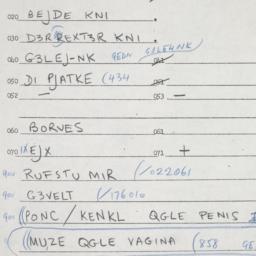 020 BEJDE KNI .
030 D3RREXT3R KNI .
040 G3LEJ-NK GEDN SJLEHNK 041
050 DI PJATKE (434
052 — 053 —
060 BORVES 061
070 1XEJX 071 +
901 RUFSTU MIR (/022061
901 G3VELT (/176010
901 ((PONC/KENKL QGLE PENIS
((MUZE QGLE VAGINA (858 GE